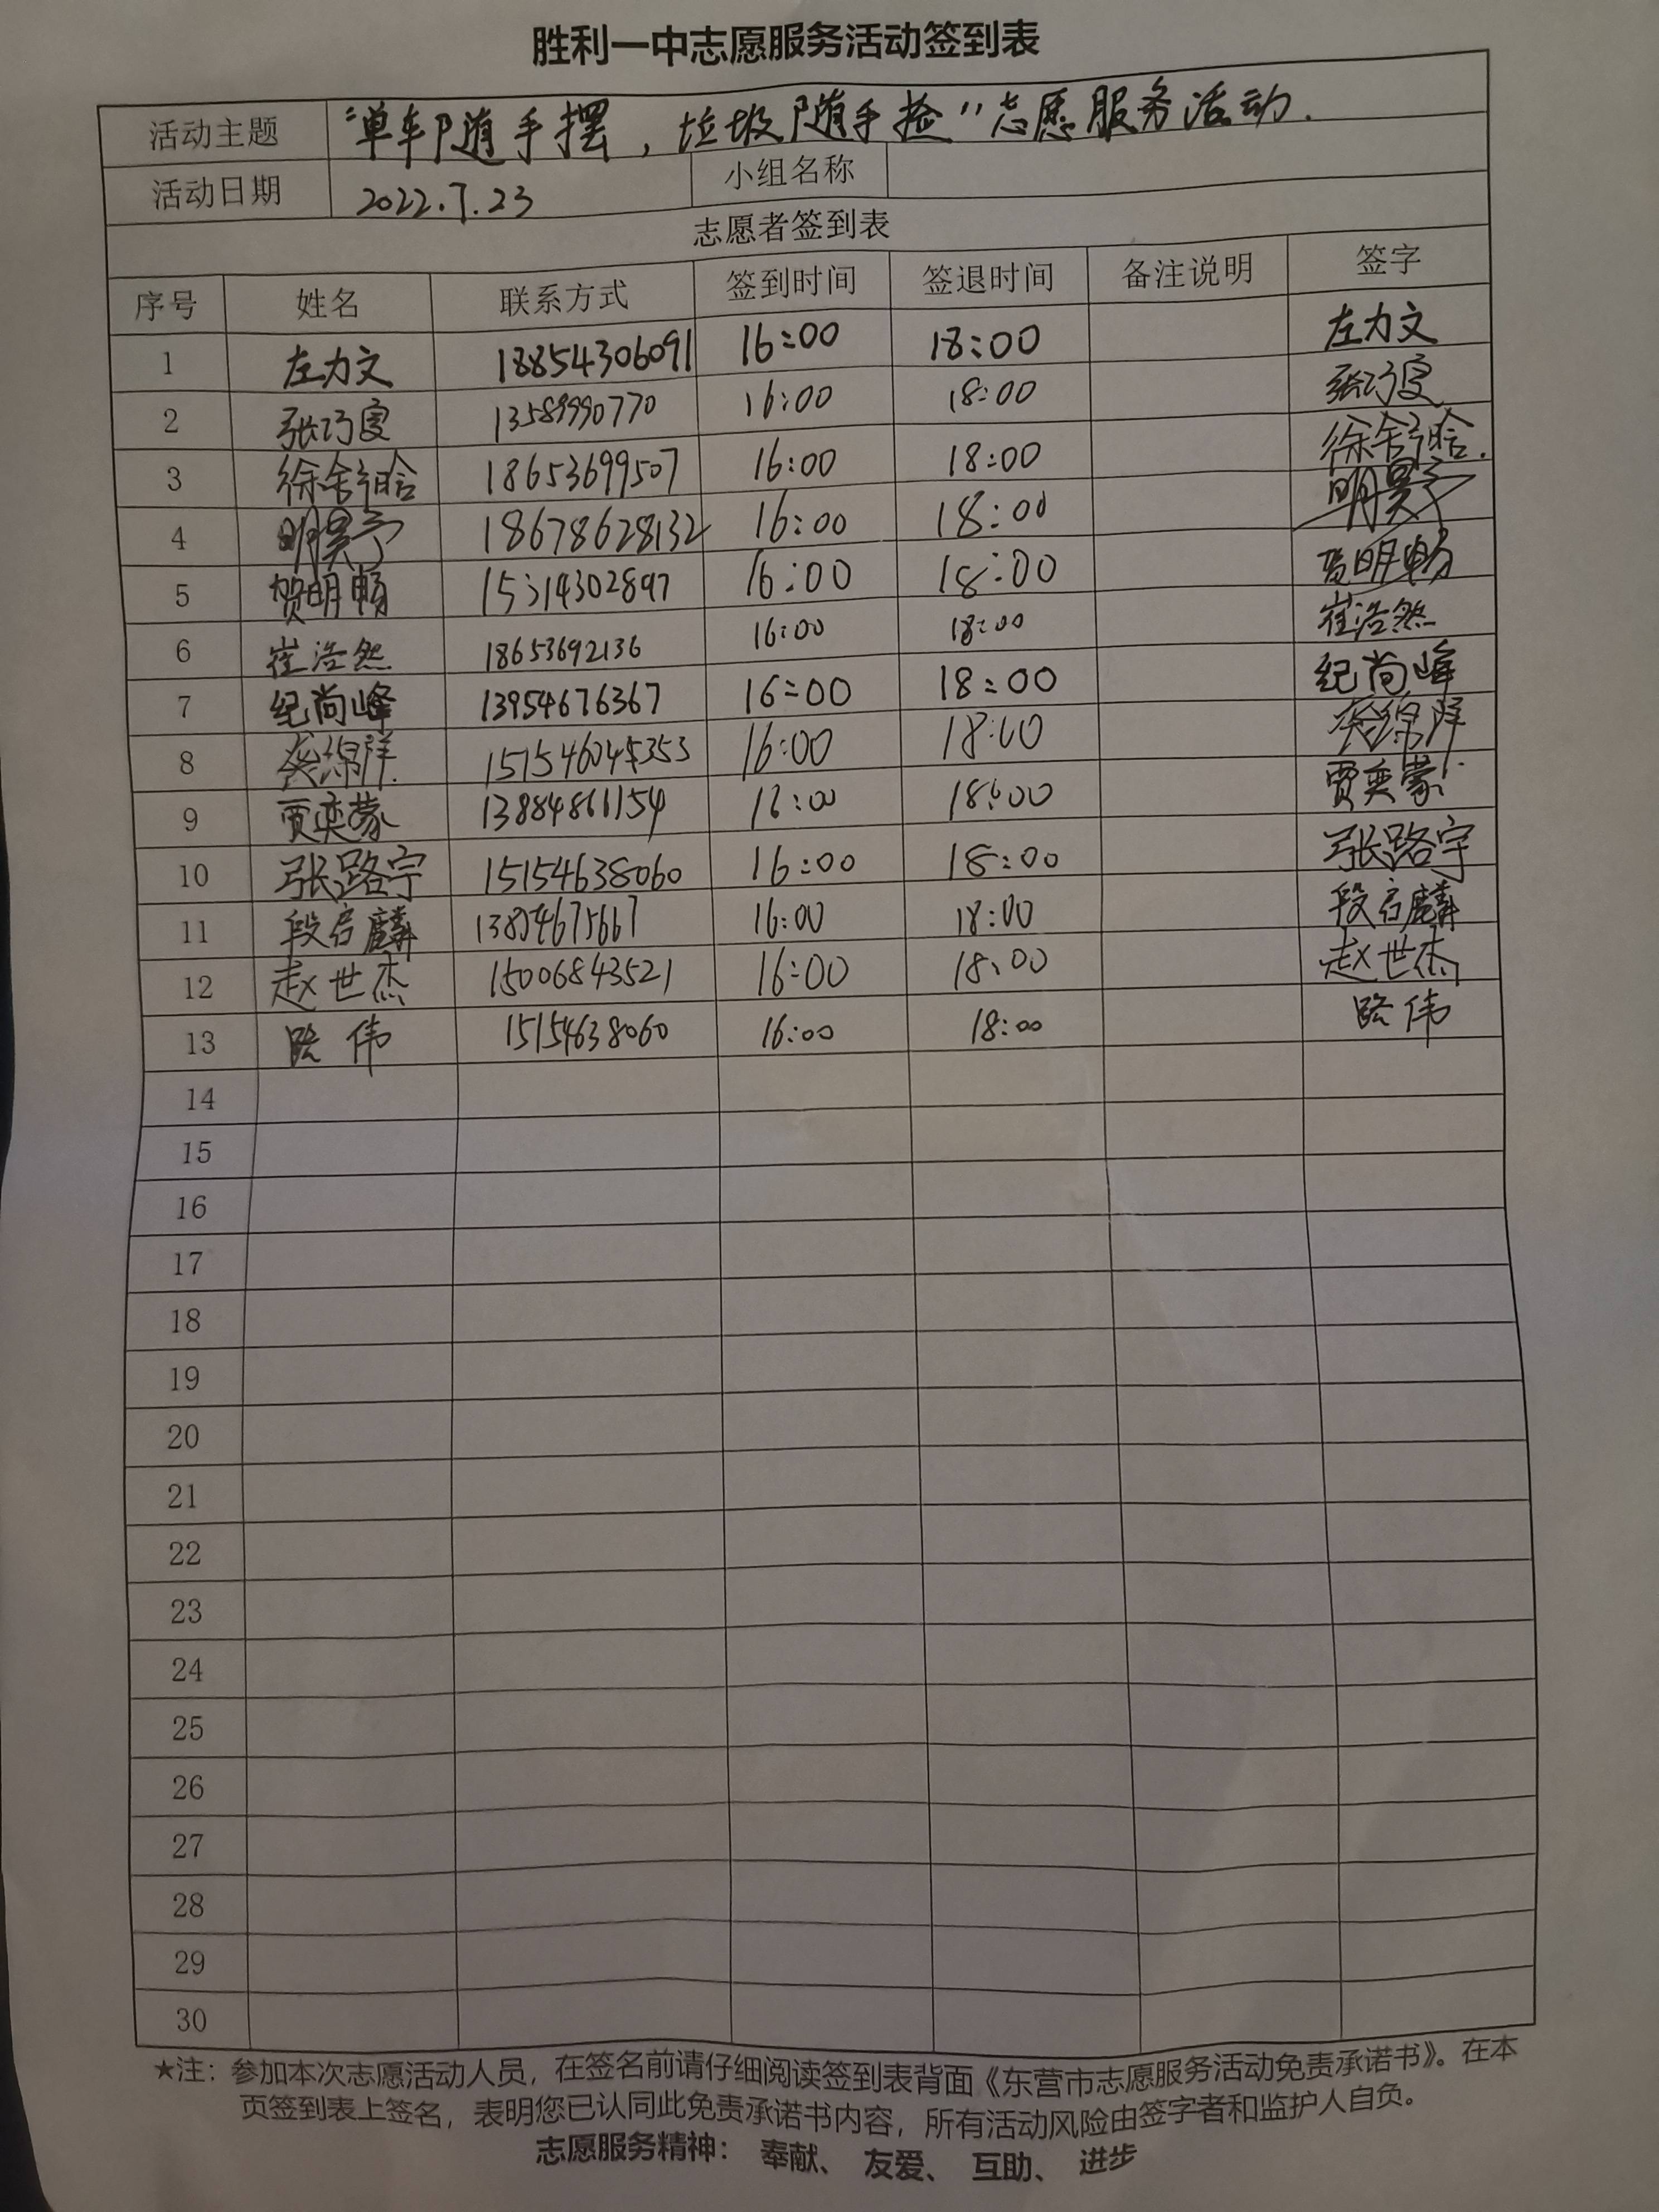 胜利一中志愿服务活动签到表
活动主题 “单车随手摆，垃圾随手捡”志愿服务活动.
活动日期 2022.7.23 小组名称
志愿者签到表
序号 姓名 联系方式 签到时间 签退时间 备注说明 签字
1 左力文 18854306091 16:00 18:00 左力文
2 13589990770 16:00 18:00
3 18653699507 16:00 18:00
4 明昊予 18678628132 16:00 18:00 明昊予
5 贺明畅 15314302897 16:00 18:00 贺明畅
6 崔浩然 18653692136 16:00 18:00 崔浩然
7 纪尚峰 13954676367 16:00 18:00 纪尚峰
8 16:00 18:00
9 贾奕蒙 13884861154 16:00 18:00 贾奕蒙
10 张路宇 15154638060 16:00 18:00 张路宇
11 段启麟 16:00 18:00 段启麟
12 赵世杰 15006843521 16:00 18:00 赵世杰
13 路伟 15154638060 16:00 18:00 路伟
14
15
16
17
18
19
20
21
22
23
24
25
26
27
28
29
30
★注：参加本次志愿活动人员，在签名前请仔细阅读签到表背面《东营市志愿服务活动免责承诺书》。在本
页签到表上签名，表明您已认同此免责承诺书内容，所有活动风险由签字者和监护人自负。
志愿服务精神：奉献、友爱、互助、进步